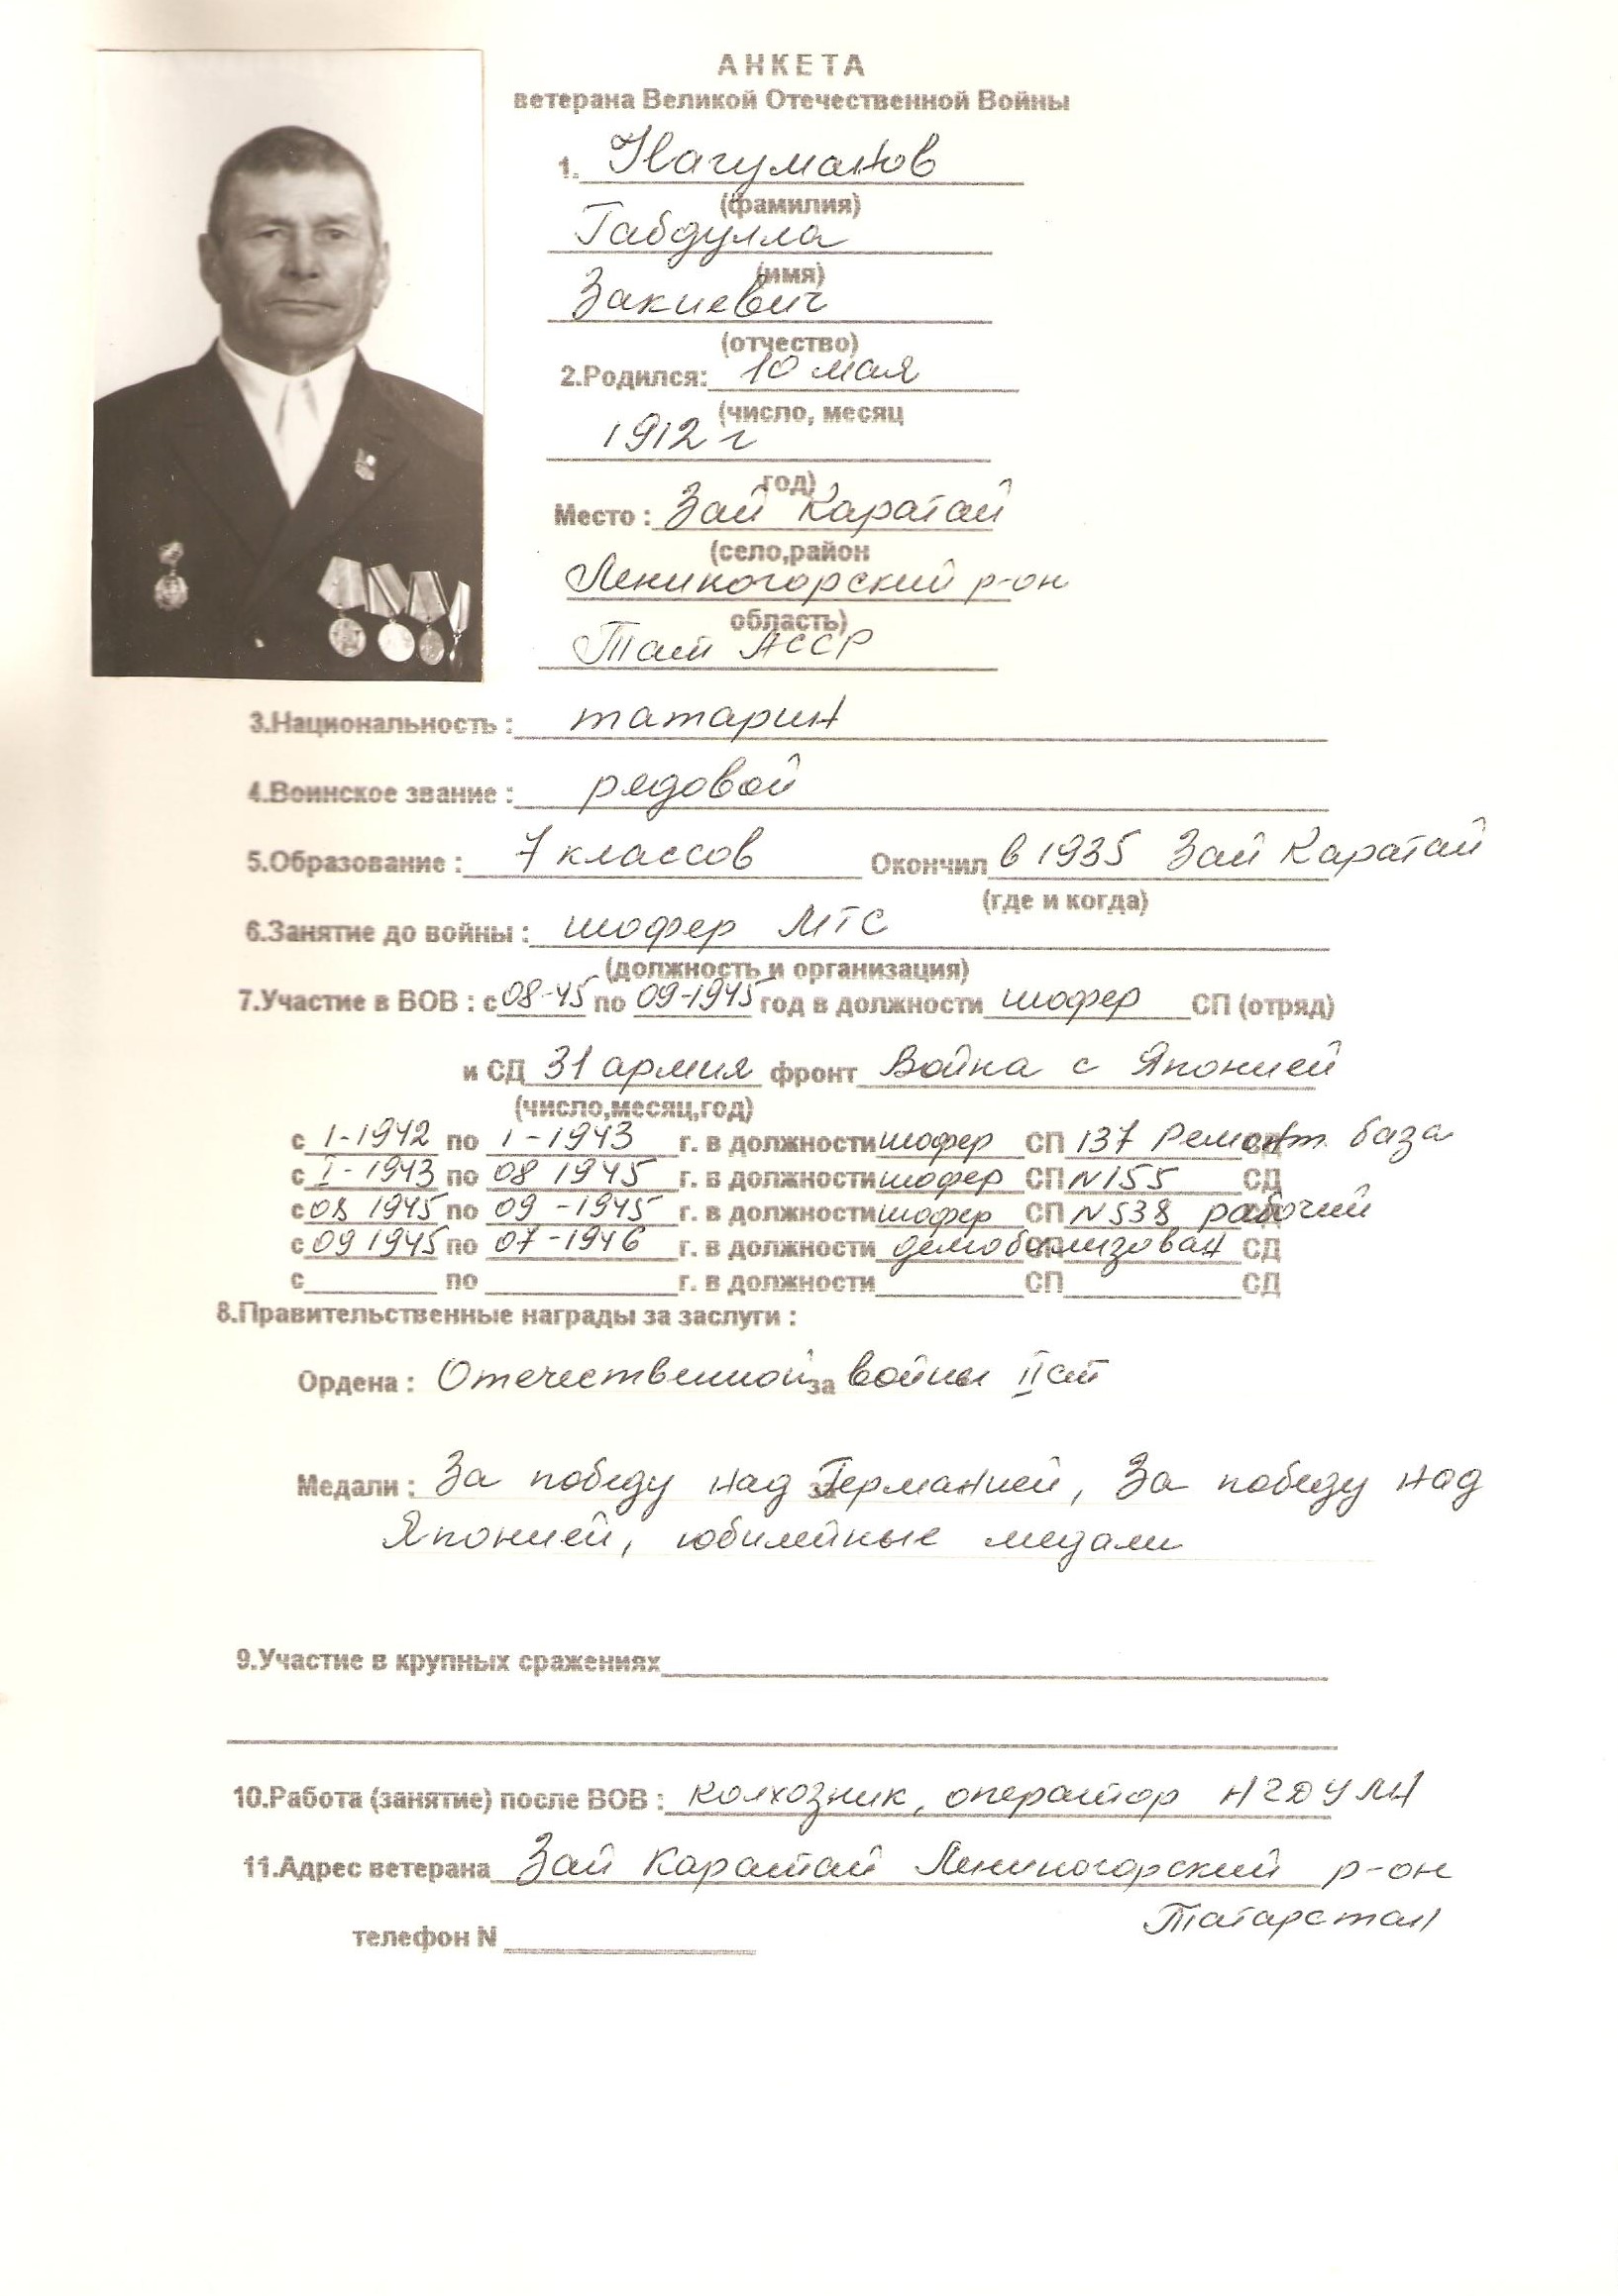 АНКЕТА
ветерана Великой Отечественной Войны
1. Нагуманов
(фамилия)
Габдулла
(имя)
Закиевич
(отчество)
2.Родился: 10 мая
(число, месяц
1912 г
год)
Место : Зай Каратай
(село,район
Лениногорский р-он
область)
Тат АССР
3.Национальность : татарин
4.Воинское звание : рядовой
5.Образование : 7 классов Окончил в 1935 Зай Каратай
(где и когда)
6.Занятие до войны : шофер МТС
(должность и организация)
7.Участие в ВОВ : с 08-45 по 09-1945 год в должности шофер СП (отряд)
и СД 31 армия фронт Война с Японией
(число,месяц,год)
с I-1942 по I-1943 г. в должности шофер СП 137 Ремонт. база СД
с I-1943 по 08 1945 г. в должности шофер СП N155 СД
с 08 1945 по 09-1945 г. в должности шофер СП N538 рабочий СД
с 09 1945 по 07-1946 г. в должности демобилизован СП СД
с по г. в должности СП СД
8.Правительственные награды за заслуги :
Ордена : Отечественной за войны II ст
Медали : За победу над за Германией, За победу над
Японией, юбилейные медали
9.Участие в крупных сражениях
10.Работа (занятие) после ВОВ : колхозник, оператор НГДУ ЛН
11.Адрес ветерана Зай Каратай Лениногорский р-он
Татарстан
телефон N